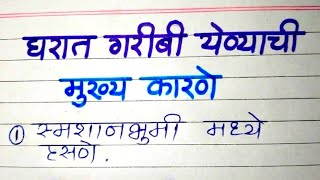 घरात गरीबी येण्याची
मुख्य कारणे
① स्मशानभुमी मध्ये
हसणे.